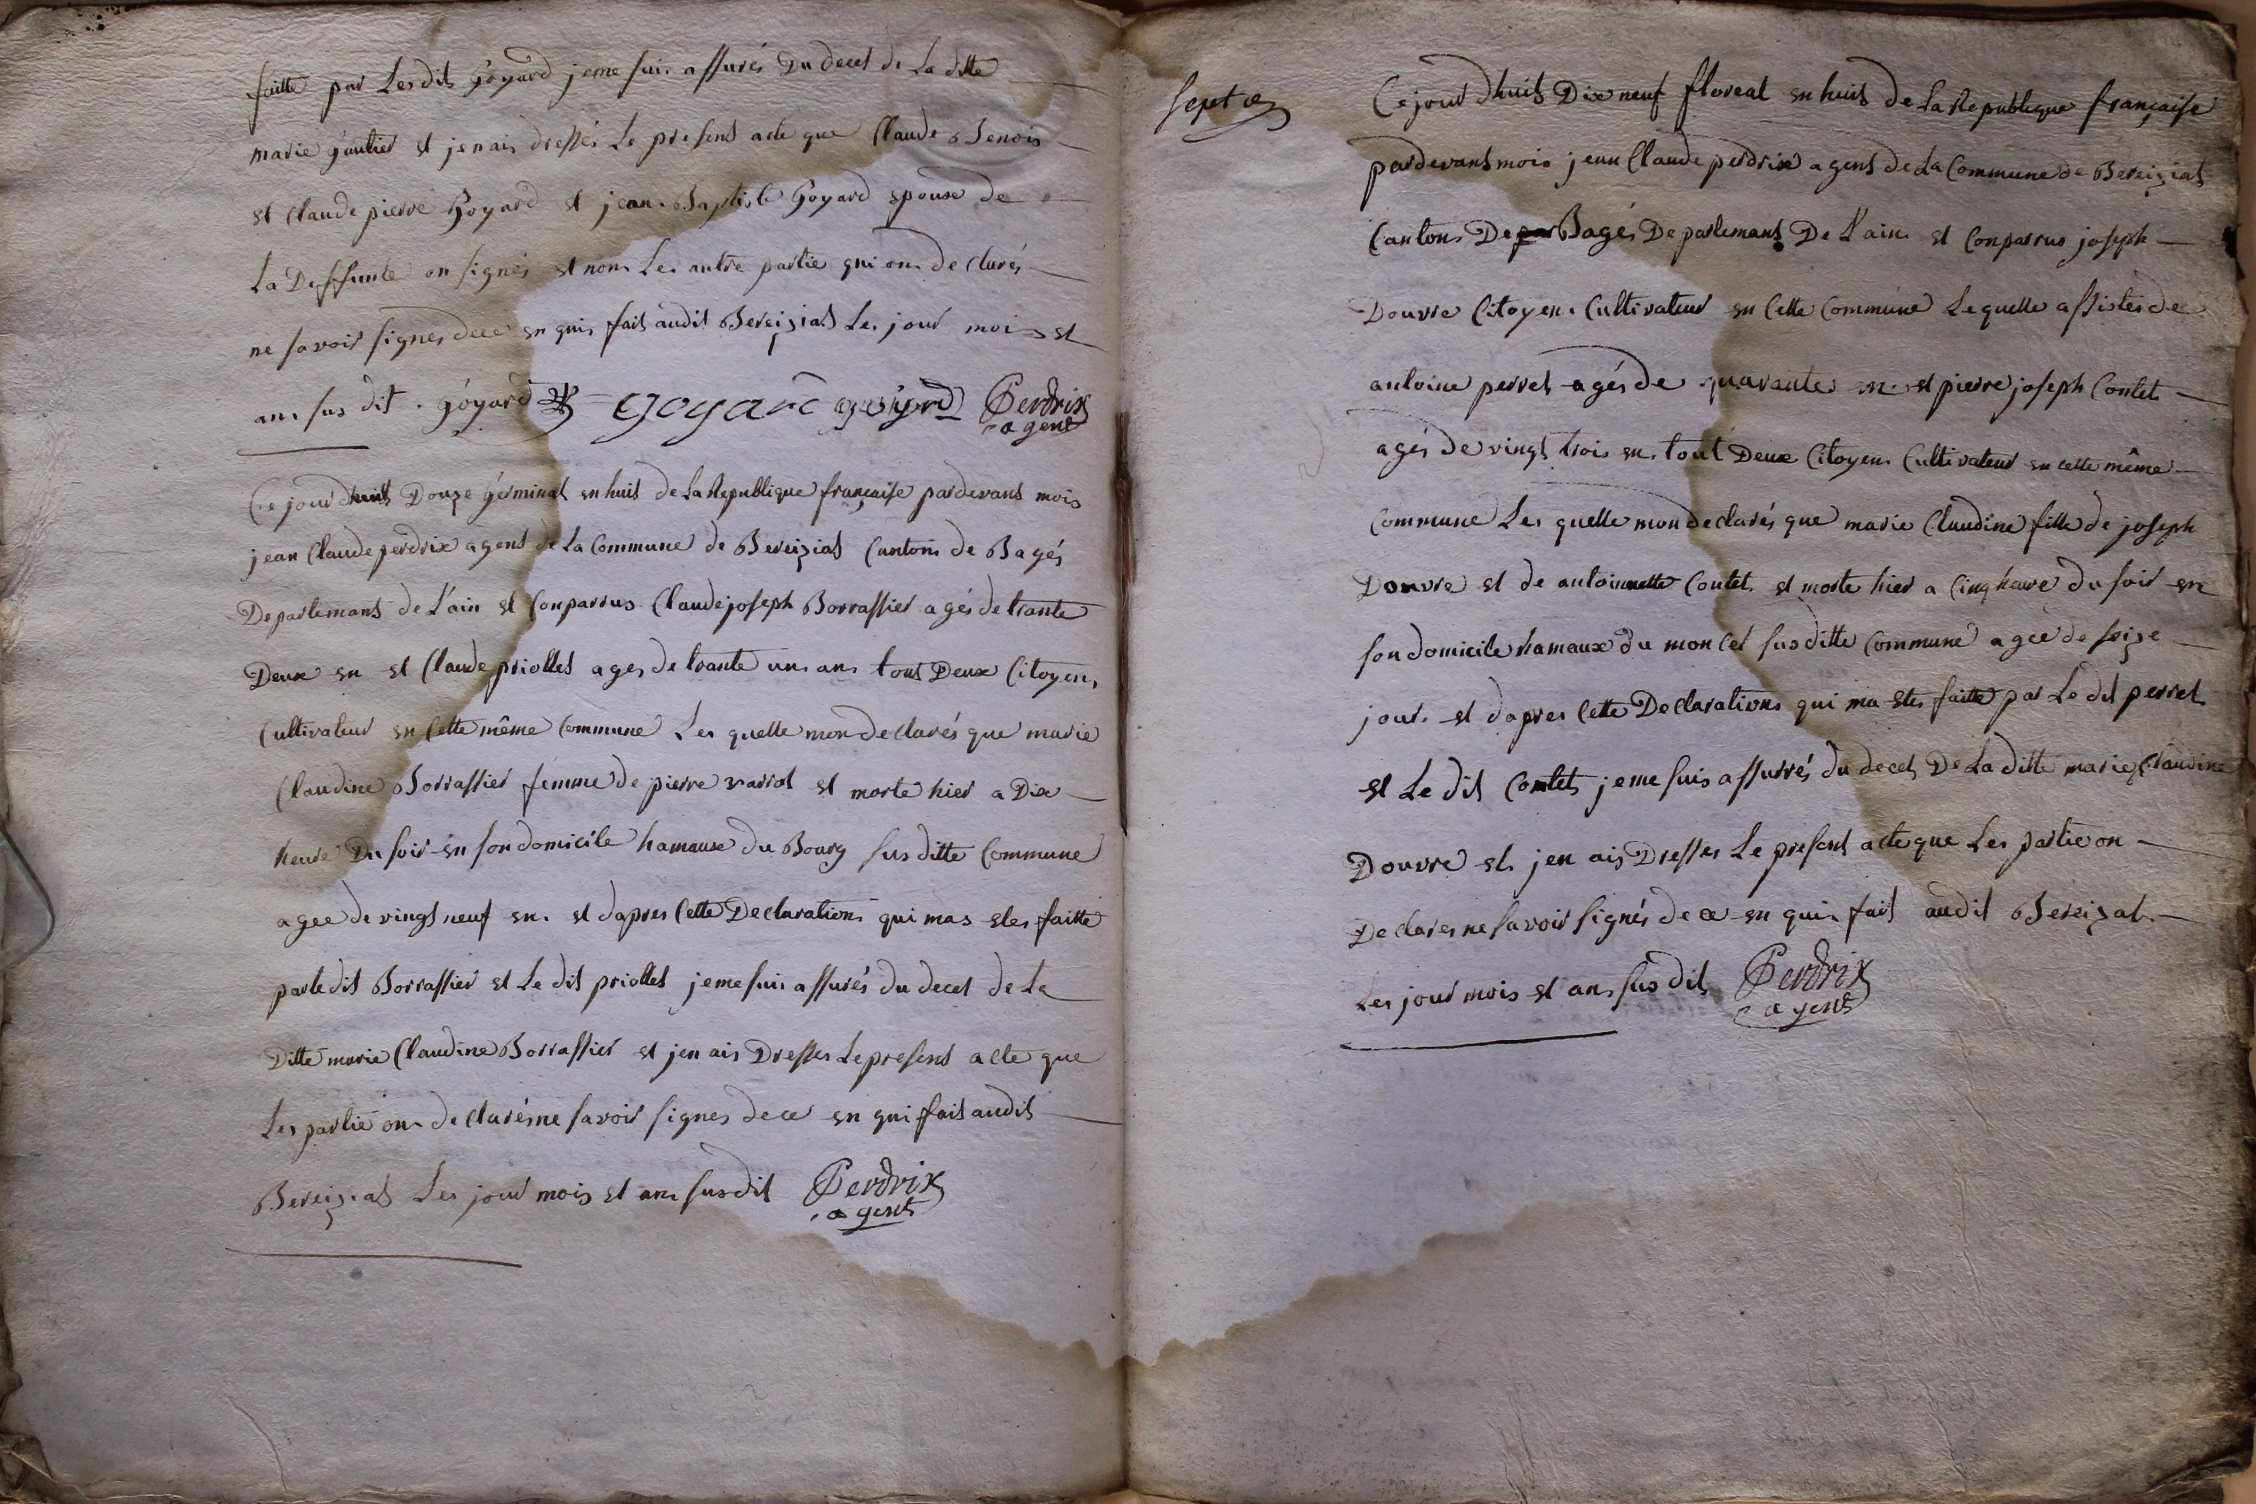 faitte par Lesdits Goyard jeme suis assurés Du decet de La ditte
marie gautier et jenais dressés Le present acte que Claude Benois
et Claude pierre Goyard et jean Baptiste Goyard epoux de
La Deffunte on signés et non Les autre partie qui on declarés
ne savoir signes dece en quis fait audit Bereiziat Les jour mois et
an susdit . goyard goyard goyard Perdrix
agent
Ce jourdhuits Douze germinal en huit de La Republique française pardevant mois
jean Claude perdrix agent de La Commune de Bereiziat Cantons de Bagés
Departemants de L'ain et Conparrus Claude joseph Borrassier agés de trante
Deux en et Claude priollet ages de trante un ans tout Deux Citoyens
Cultivateur en Cette même Commune Les quelle mon declarés que marie
Claudine Borrassier femme de pierre varrot et morte hier a Dix
heure Du soir en son domicile hamaux du Bourg sus ditte Commune
agee de vingt neuf en et dapres Cette Declaration qui mas etes faitte
parledit Borrassier et Le dit priollet jemesuis assurés du decet de La
Ditte marie Claudine Borrassier et jen ais Dresses Lepresent acte que
Les partie on declarés ne savoir signes dece en qui fait audit
Bereiziat Les jour mois et an susdit Perdrix
agent
sept
Ce jourdhuits Dix neuf floreal en huit de La Republique française
pardevant mois jean Claude perdrix agent de La Commune de Bereiziat
Cantons De Bagés Departemant De L'ain et Conparrus joseph
Douvre Citoyen Cultivateur en Cette Commune Lequelle assistés de
antoine perret agés de quarante en et pierre joseph Contet
agés de vingt trois en tout Deux Citoyen Cultivateur en cette même
Commune Les quelle mon declarés que marie Claudine fille de joseph
Douvre et de antoinnette Contet et morte hier a Cinq heure du soir en
son domicile hamaux du moncel sus ditte Commune agee de seize
jour et dapres Cette Declarations qui ma etes faitte par Ledit perret
et Le dit Contet jeme suis assurrés du decet De La ditte marie Claudine
Douvre et jen ais Dresses Le present acte que Les partie on
Declares ne savoir signés de ce en qui fait audit Bereizat
Les jour mois et an susdit Perdrix
agent